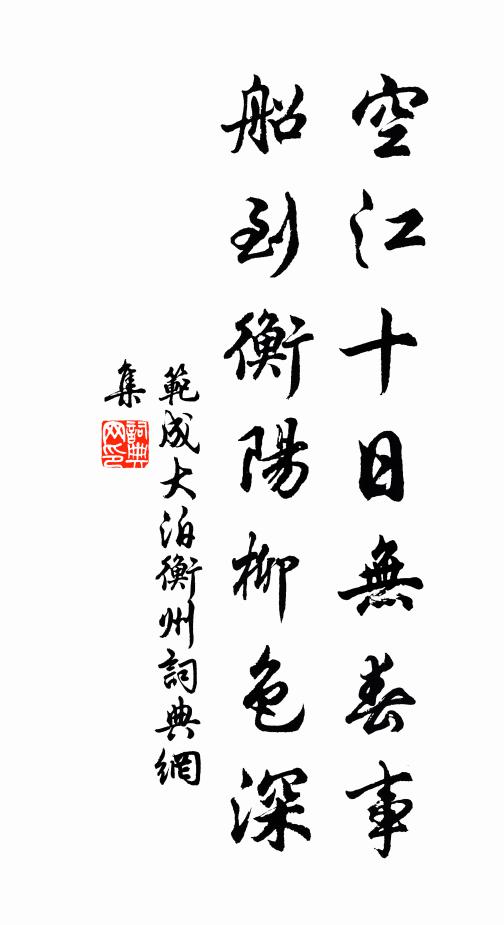 空江十日無春事
船到衡陽柳色深
範成大泊衡州詞典網
集
詞典
网印